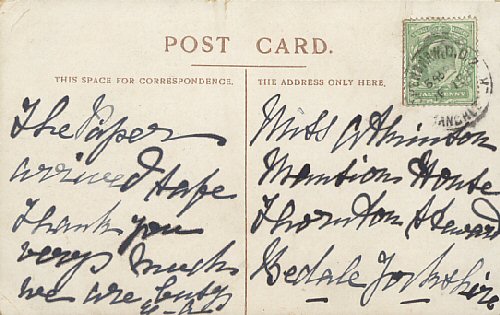 POST CARD.
THIS SPACE FOR CORRESPONDENCE.
The Paper
arrived I hope
Thank you
very much
we are busy
THE ADDRESS ONLY HERE.
Miss Atkinson
Mansions House
Thornton Steward
Bedale Yorkshire
HALFPENNY